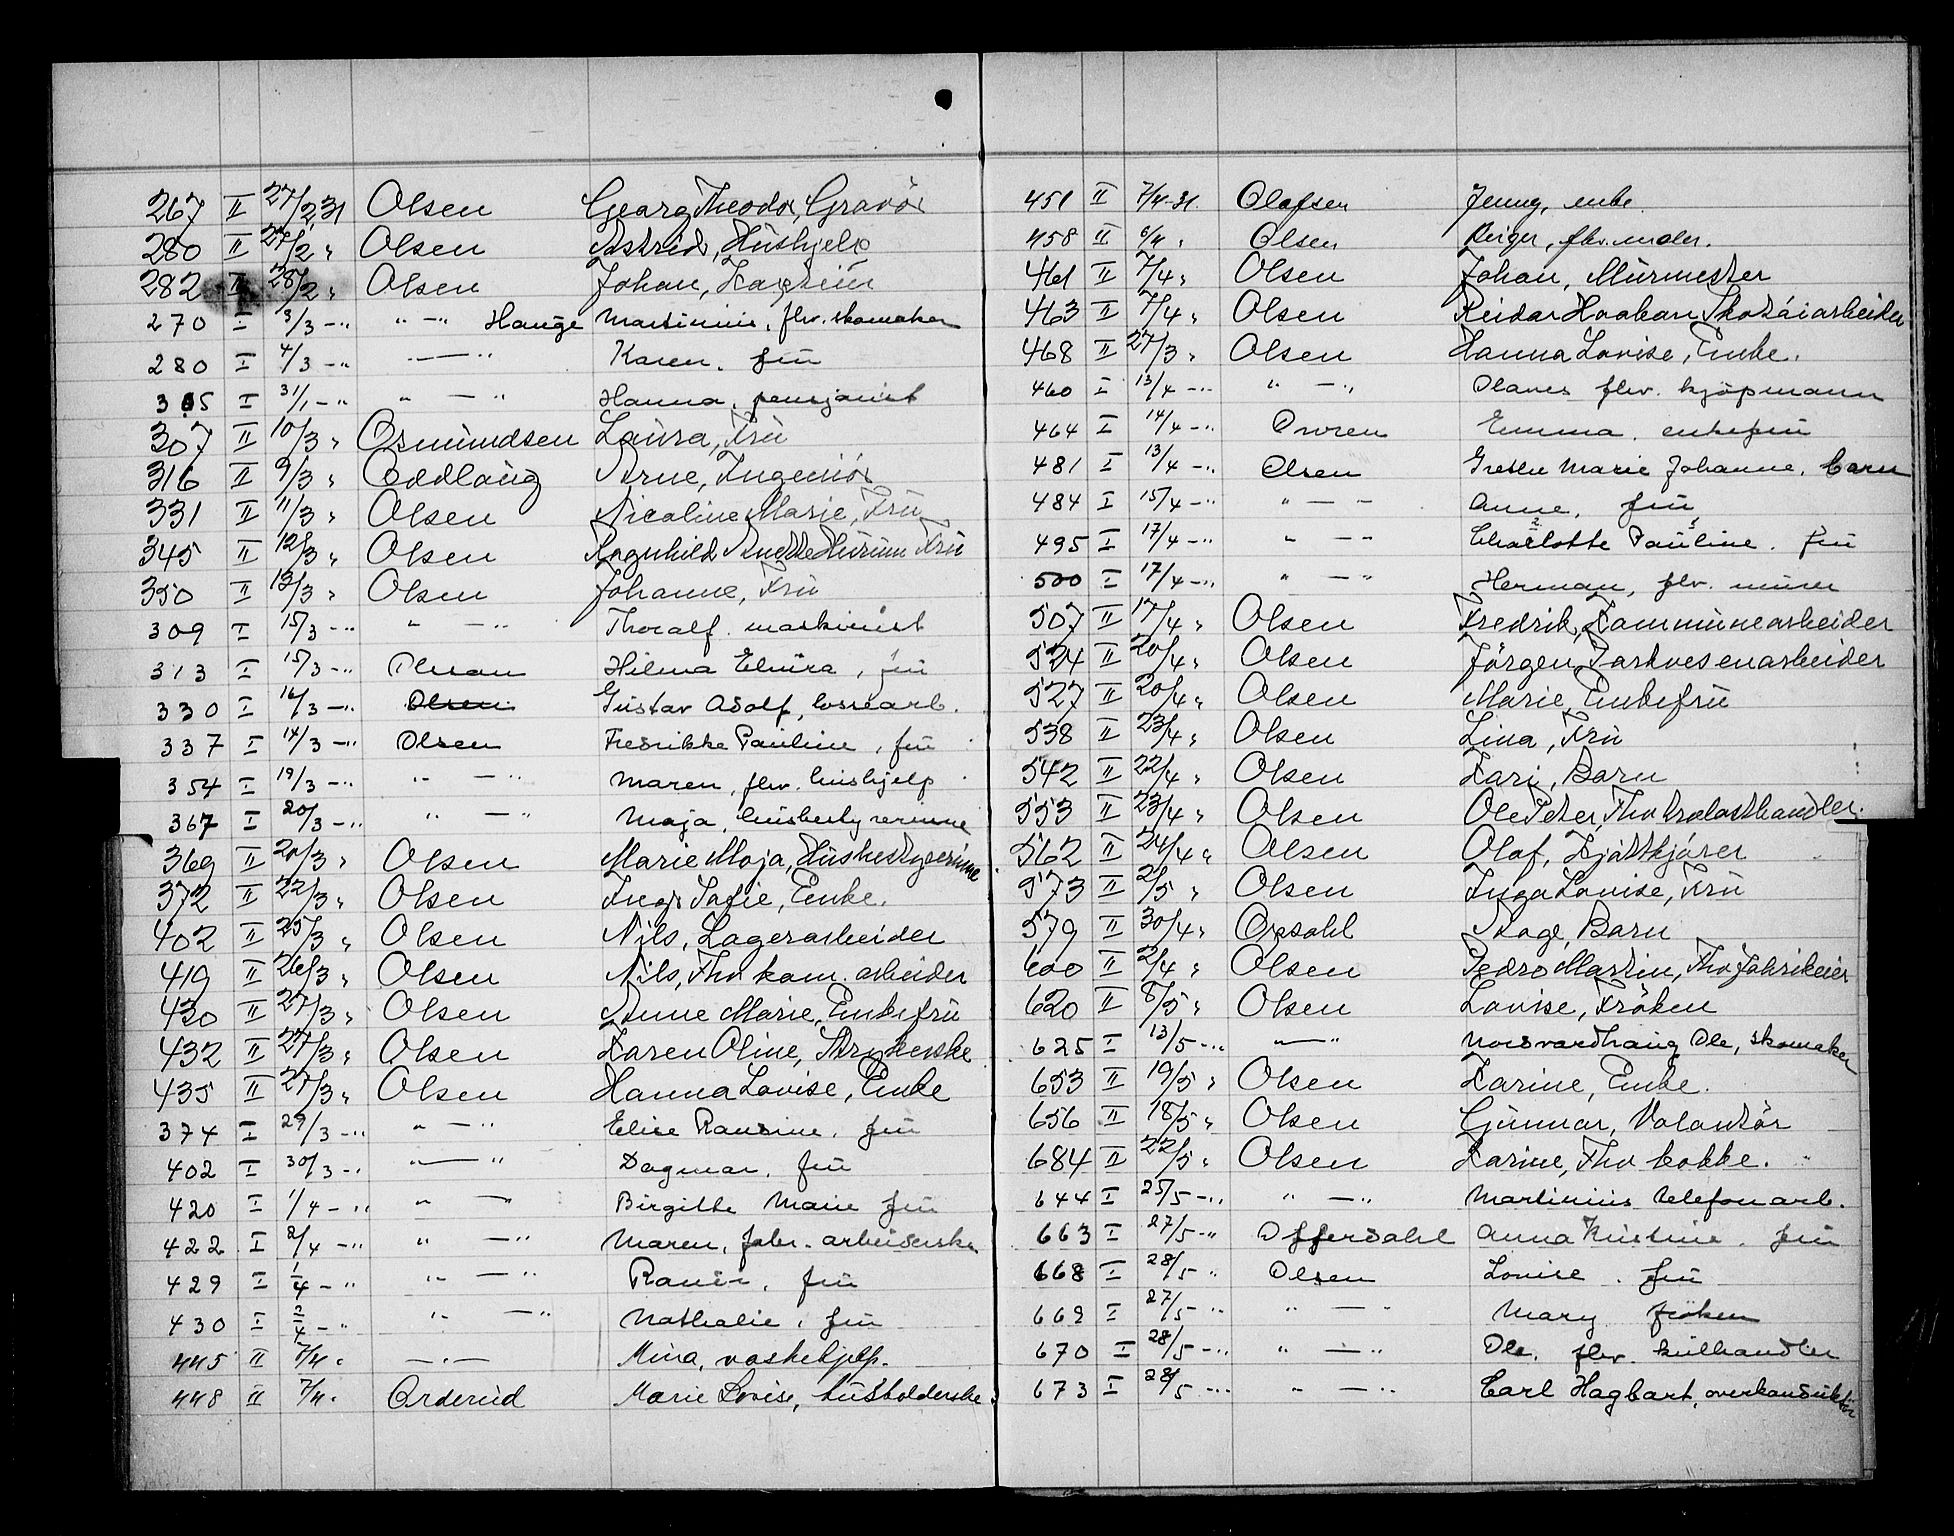 267 II 27/2 31 Olsen Georg Theodor, Gravør
280 II 27/2 " Olsen Astrid, Hushjelp
282 II 28/2 " Olsen Johan, Kaptein
270 I 3/3 - " " - " Hauge Martinius, fhv. skomaker
280 I 4/3 - " " - " Karen, fru
305 I 31/1 - " " - " Hanna, pensjonist
307 II 10/3 " Osmundsen Laura, Fru
316 II 9/3 " Oddlaug Arne, Ingeniør
331 II 11/3 " Olsen Nicoline Marie, Fru
345 II 12/3 " Olsen Ragnhild Anette Hurum Fru
350 II 13/3 " Olsen Johanne, Fru
309 I 15/3 - " " - " Thoralf, maskinist
313 I 15/3 - " Olsson Hilma Elvira, fru
330 I 16/3 - " Olsen Gustav Adolf, lossearb.
337 I 14/3 - " Olsen Fredrikke Pauline, fru
354 I 19/3 - " " - " Maren, fhv. hushjelp
367 I 20/3 - " " - " Maja, husbestyrerinne
369 II 20/3 " Olsen Marie Maja, Husbestyrerinne
372 II 22/3 " Olsen Inga Sofie, Enke.
402 II 25/3 " Olsen Nils, Lagerarbeider
419 II 26/3 " Olsen Nils, Fhv kom. arbeider
430 II 27/3 " Olsen Anne Marie, Enkefru
432 II 27/3 " Olsen Karen Oline, Strykerske
435 II 27/3 " Olsen Hanna Lovise, Enke
374 I 29/3 - " " - " Elise Pauline, fru
402 I 30/3 - " " - " Dagmar, fru
420 I 1/4 - " " - " Birgitte Marie fru
422 I 2/4 - " " - " Maren, fabr. arbeiderske
429 I 1/4 - " " - " fru
430 I 2/4 - " " - " Nathalie, fru
445 II 7/4 " - " - Mina, vaskehjelp.
448 II 7/4 " Orderud Marie Lovise, husholderske
451 II 7/4-31 Olafsen Jenny, enke
458 II 6/4 " Olsen Birger, fhv. maler.
461 II 7/4 " Olsen Johan, Murmester
463 II 7/4 " Olsen Reidar Haakon Skotøiarbeider
468 II 27/3 " Olsen Hanna Lovise, Enke.
460 I 13/4 - " " - " Olaves fhv. kjøpmann
464 I 14/4 - " Ovren Emma, enkefru
481 I 13/4 - " Olsen Grethe Marie Johanne, barn
484 I 15/4 - " " - " Anne, fru
495 I 17/4 - " " - " Charlotte Pauline, fru
500 I 17/4 - " " - " Herman, fhv. murer
507 II 17/4 " Olsen Fredrik, Kommunearbeider
524 II 20/4 " Olsen Jørgen, Parkvesenarbeider
527 II 20/4 " Olsen Marie, Enkefru
538 II 23/4 " Olsen Lina, Fru
542 II 22/4 " Olsen Kari, Barn
553 II 23/4 " Olsen Ole Peter, Fhv trelasthandler.
562 II 24/4 " Olsen Olaf, Kjøttkjører
573 II 2/5 " Olsen Inga Lovise, Fru
579 II 30/4 " Opsahl Aage, Barn
600 II 2/4 " Olsen Pedro Martin, Fhv fabrikeier
620 II 8/5 " Olsen Lovise, Frøken
625 I 13/5 - " " - " Ole, skomaker
653 II 19/5 " Olsen Karine, Enke.
656 II 18/5 " Olsen Gunnar, Volontør
684 II 22/5 " Olsen Karine, Fhv kokke.
644 I 25/5 - " " - " Martinius telefonarb.
663 I 27/5 - " Offerdahl Anna Kristine, fru
668 I 28/5 " Olsen Louise, fru
669 I 27/5 - " " - " Mary frøken
670 I 28/5 - " " - " Ole, fhv. kulhandler
673 I 28/5 - " " - " Carl Hagbart, overkonduktør